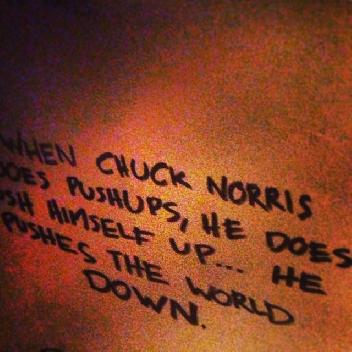 WHEN CHUCK NORRIS
DOES PUSHUPS, HE DOES
SH HIMSELF UP... HE
PUSHES THE WORLD
DOWN.